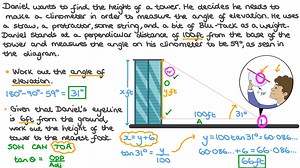 Daniel wants to find the height of a tower. He decides he needs to
make a clinometer in order to measure the angle of elevation. He uses
a straw, a protractor, some string, and a bit of Blu-Tack as a weight.
Daniel stands at a perpendicular distance of 100ft from the base of the
tower and measures the angle on his clinometer to be 59°, as seen in
the diagram.
• Work out the angle of
elevation.
180°-90°-59° = 31°
• Given that Daniel's eyeline
is 6ft from the ground,
work out the height of the
tower to the nearest foot.
SOH CAH TOA
tan θ = Opp
Adj
x ft
y ft
31°
100ft
x = y + 6
tan 31° = y
100
y = 100 tan 31° = 60.086...
60.086... + 6 = 66.086...
66ft